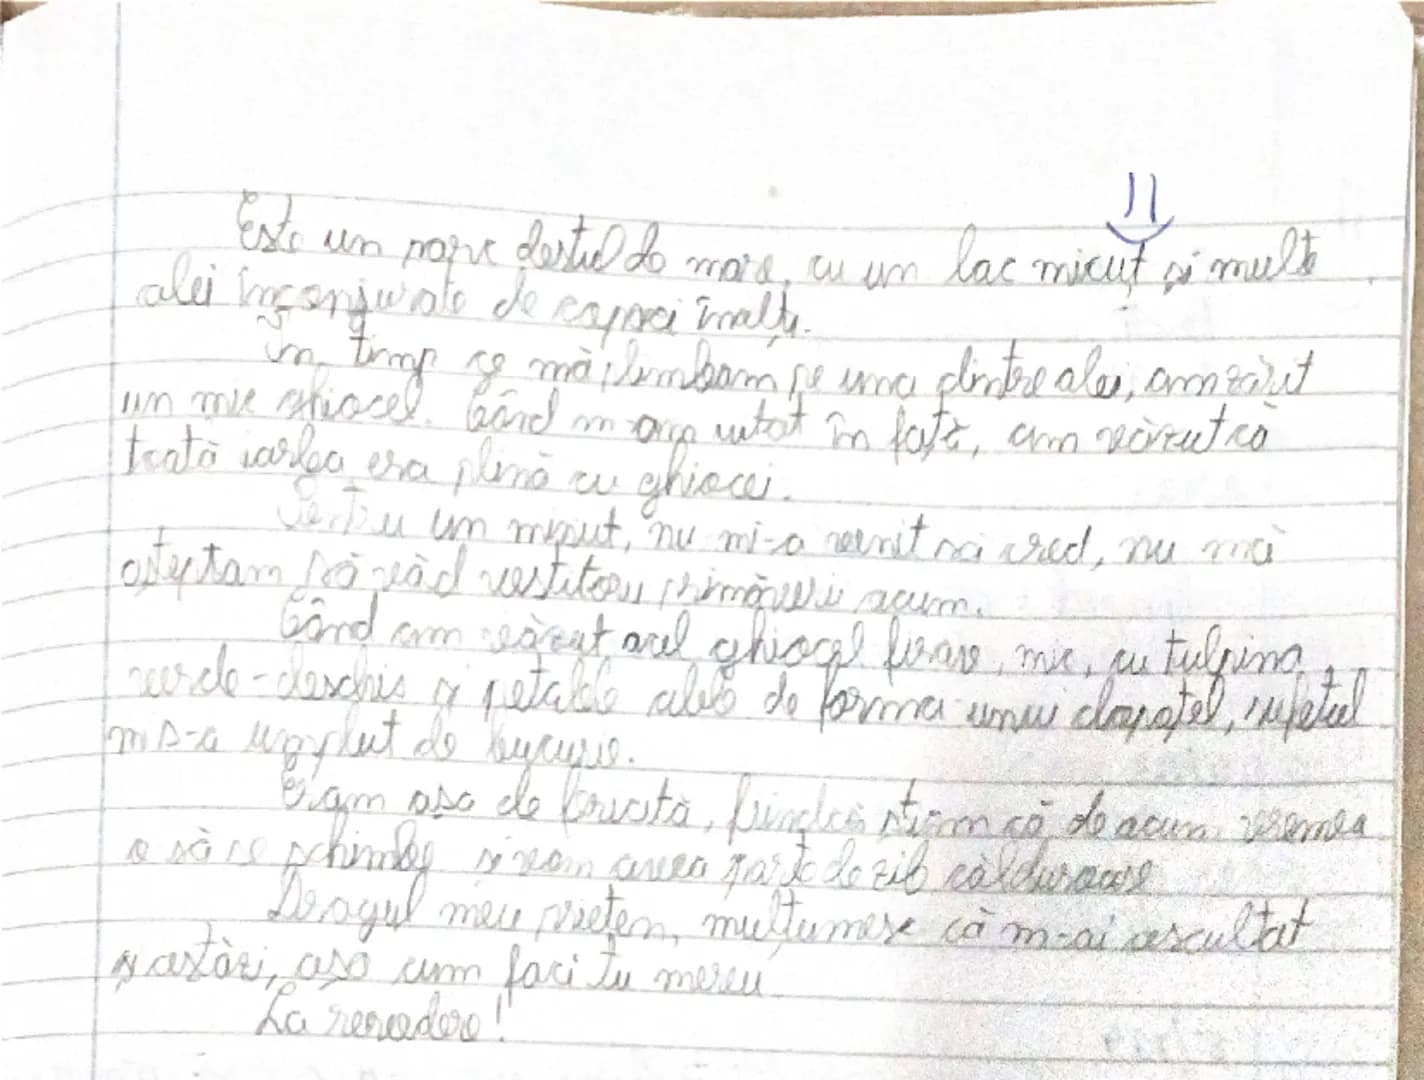 Este un parc destul de mare, cu un lac micuț și multe
alei înconjurate de copaci înalți.
În timp ce mă plimbam pe una dintre alei, am zărit
un mic ghiocel. Când m-am uitat în față, am văzut că
toată iarba era plină cu ghiocei.
Pentru un minut, nu mi-a venit să cred, nu mă
așteptam să văd vestitoru primăverii acum.
Când am văzut acel ghiocel firav, mic, cu tulpina
verde-deschis și petalele albe de forma unui clopoțel, sufletul
mi s-a umplut de bucurie.
Eram așa de fericită, fiindcă știam că de acum vremea
o să se schimbe și vom avea parte de zile călduroase
Dragul meu prieten, mulțumesc că m-ai ascultat
și astăzi, așa cum faci tu mereu
La revedere!